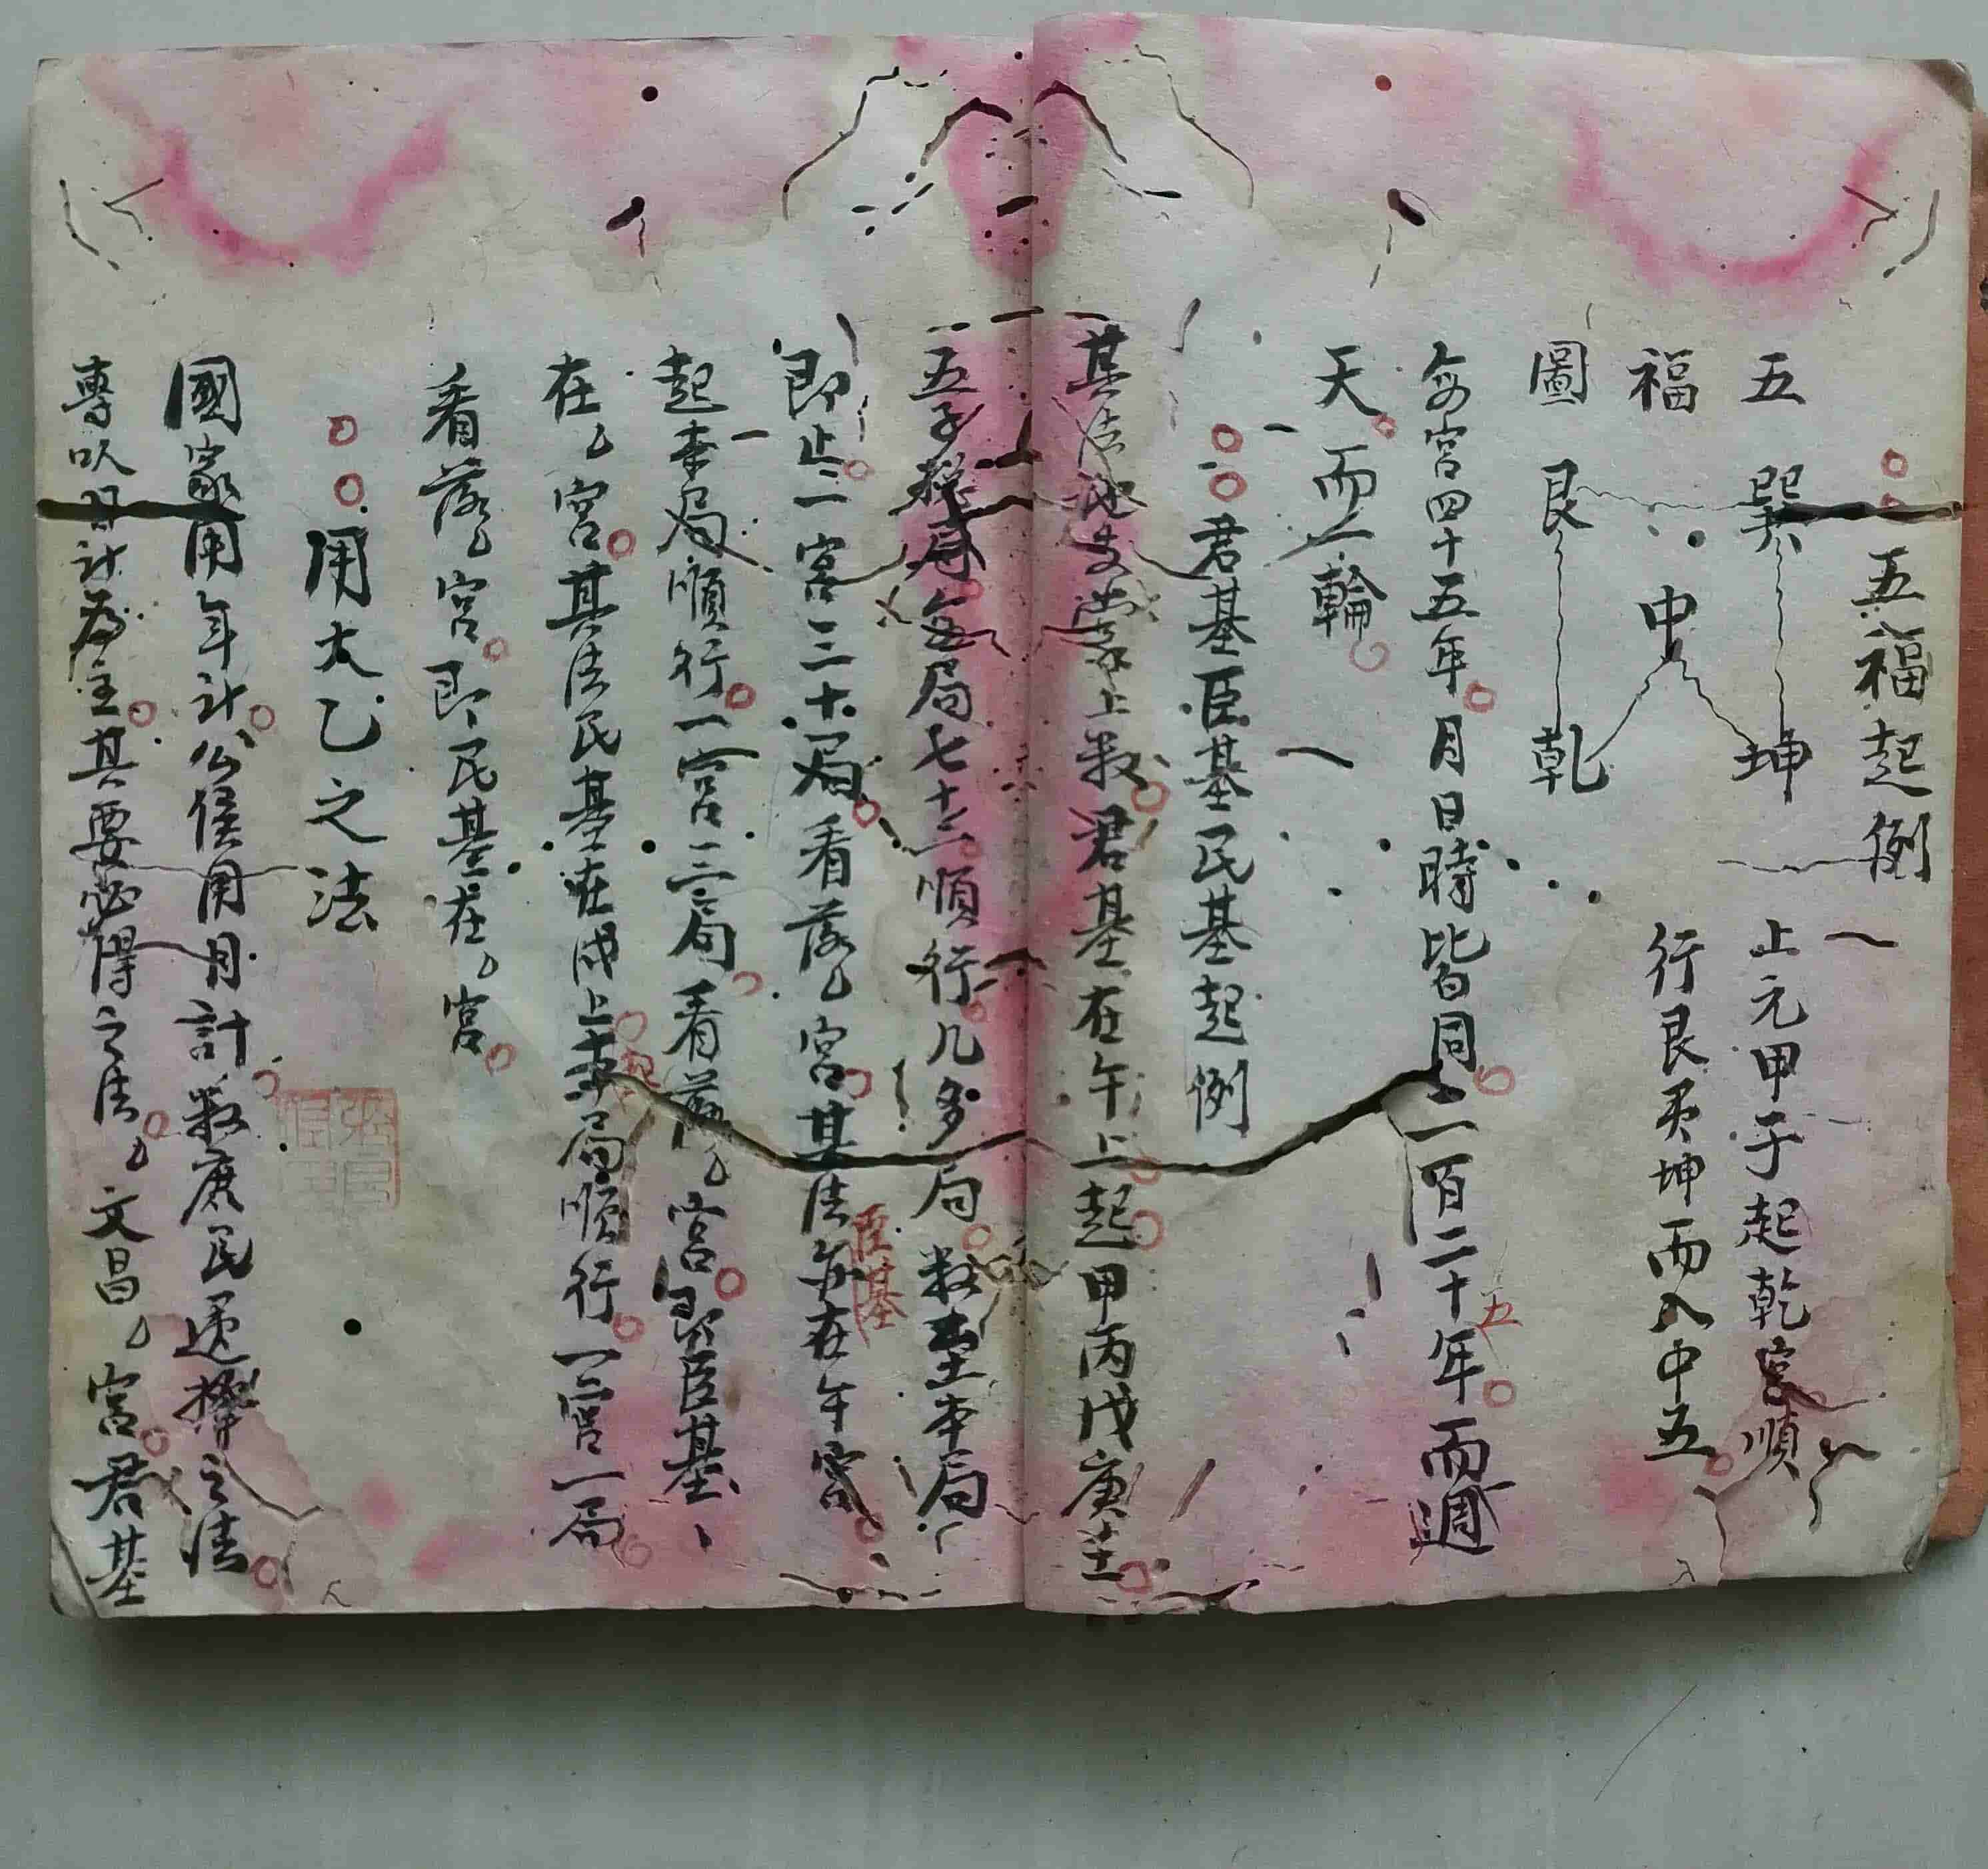 五福起例
五 巽 坤 上元甲子起乾宮順
福 中 行艮巽坤而入中五
圖 艮 乾
每宮四十五年月日時皆同二百二十五年而週
天而一輪
君基臣基民基起例
其法地支掌上数君基在午上起甲丙戊庚壬
五子 局每局七十二順行几多局数至本局
即止一宮三十局看落乚宮其法臣基亦在午宮
起本局順行一宮三局看落乚宮即臣基
在乚宮其法民基在戌上起本局順行一宮一局
看落乚宮即民基在乚宮
用太乙之法
國家用年計公侯用月計数庶民選擇之法
專以日計為主其要必得之法乚文昌乚宮君基